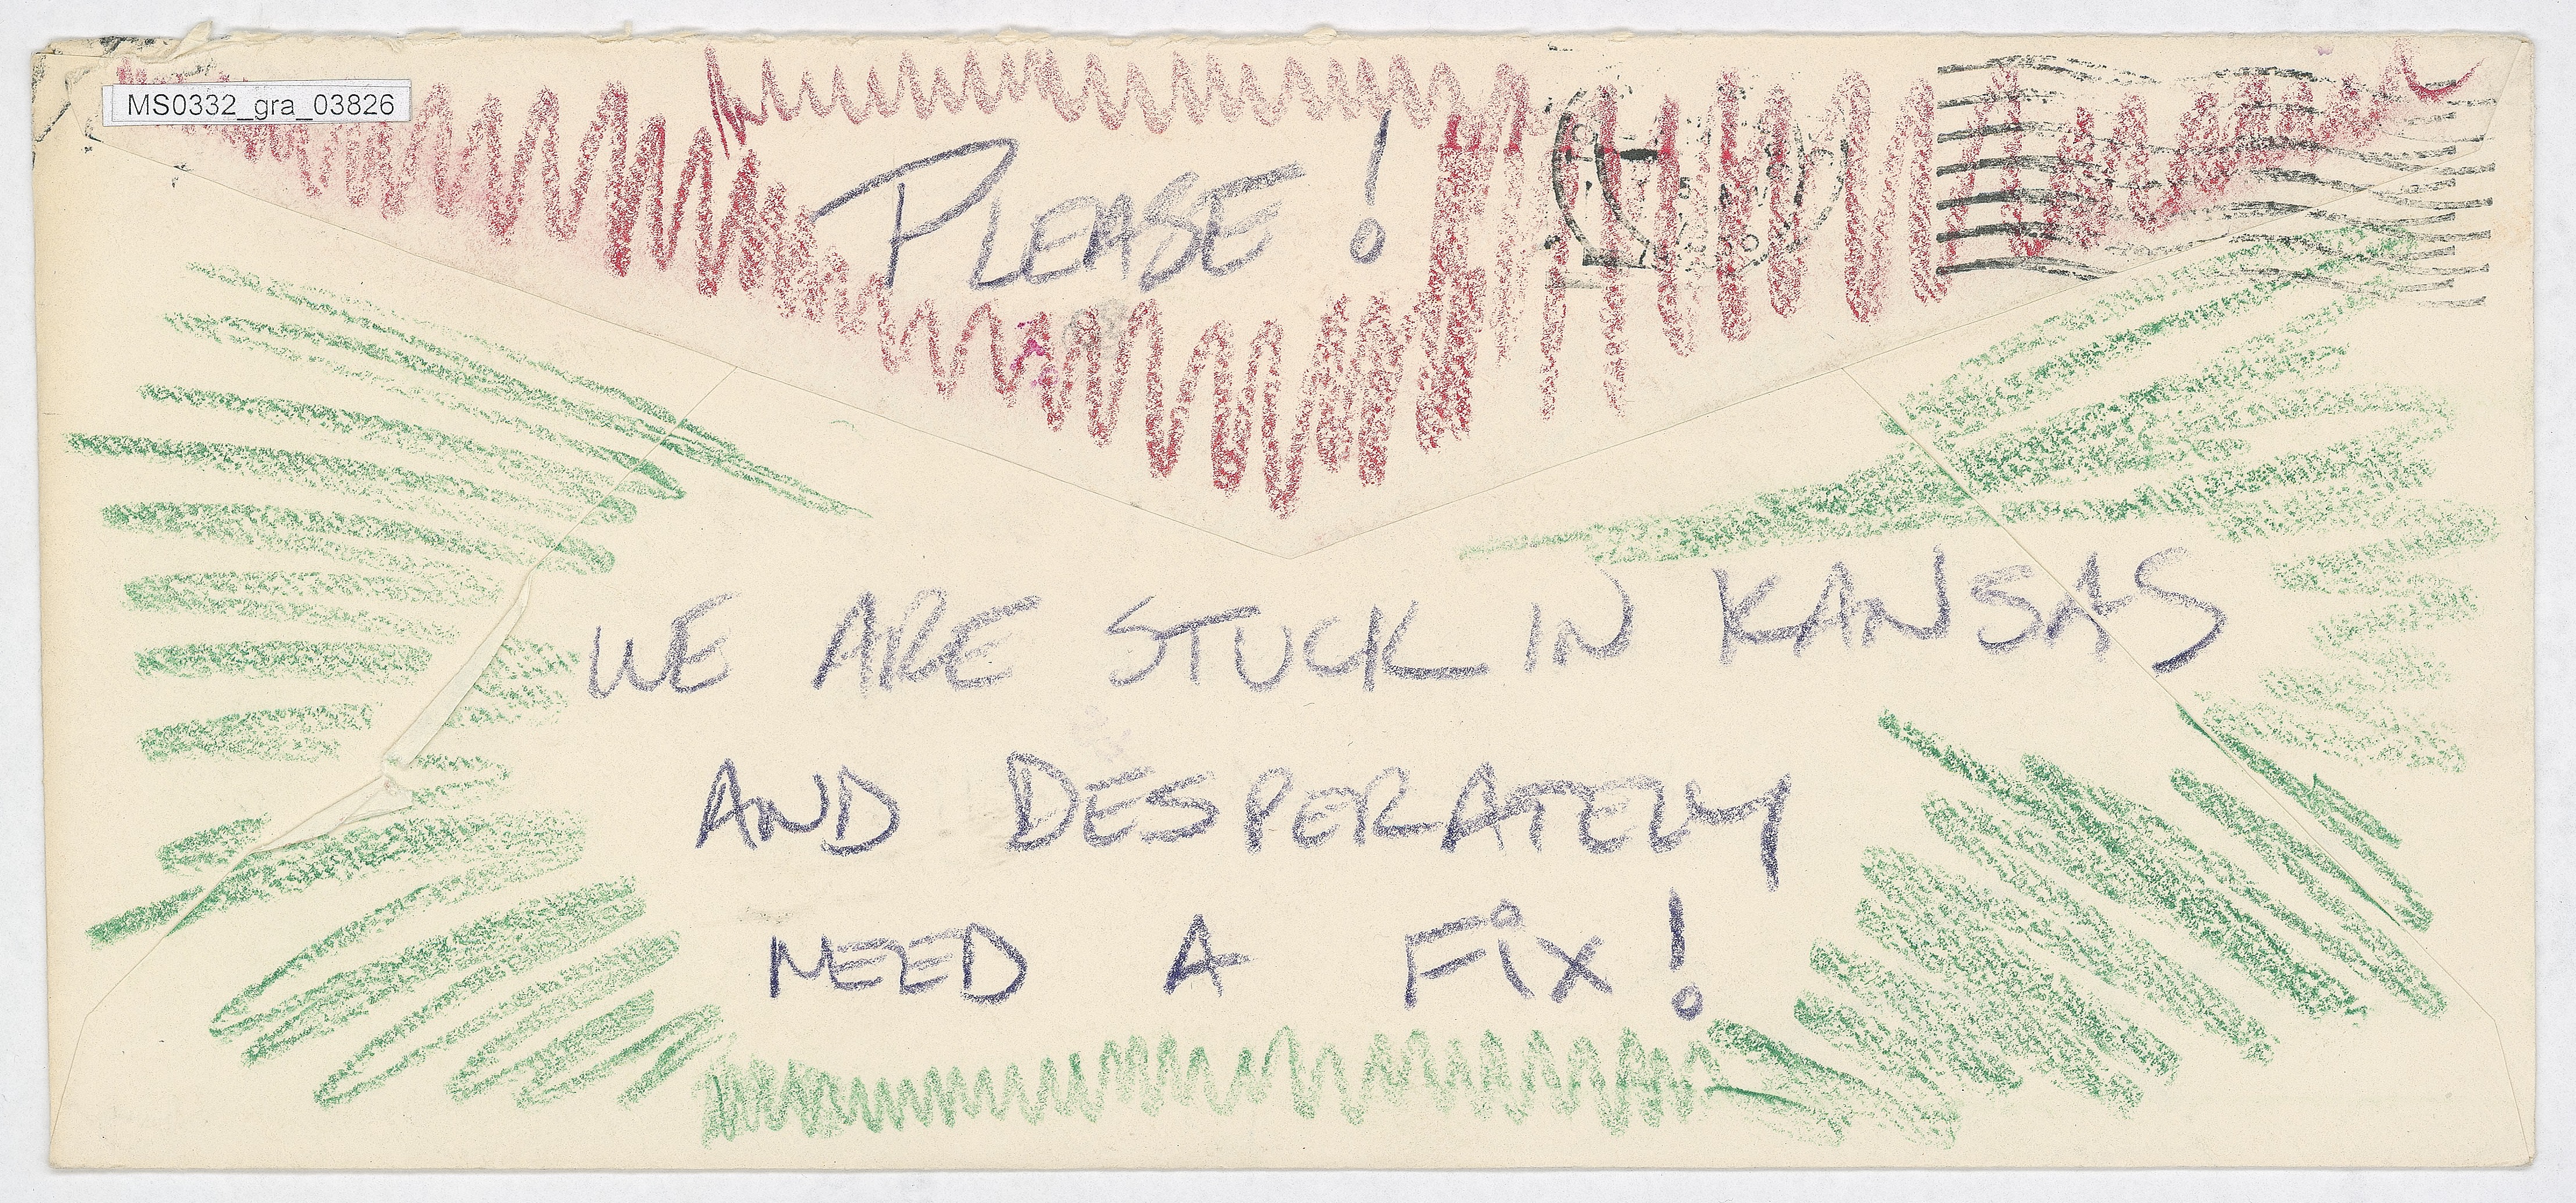 MS0332_gra_03826
PLEASE!
WE ARE STUCK IN KANSAS
AND DESPERATELY
NEED A FiX!